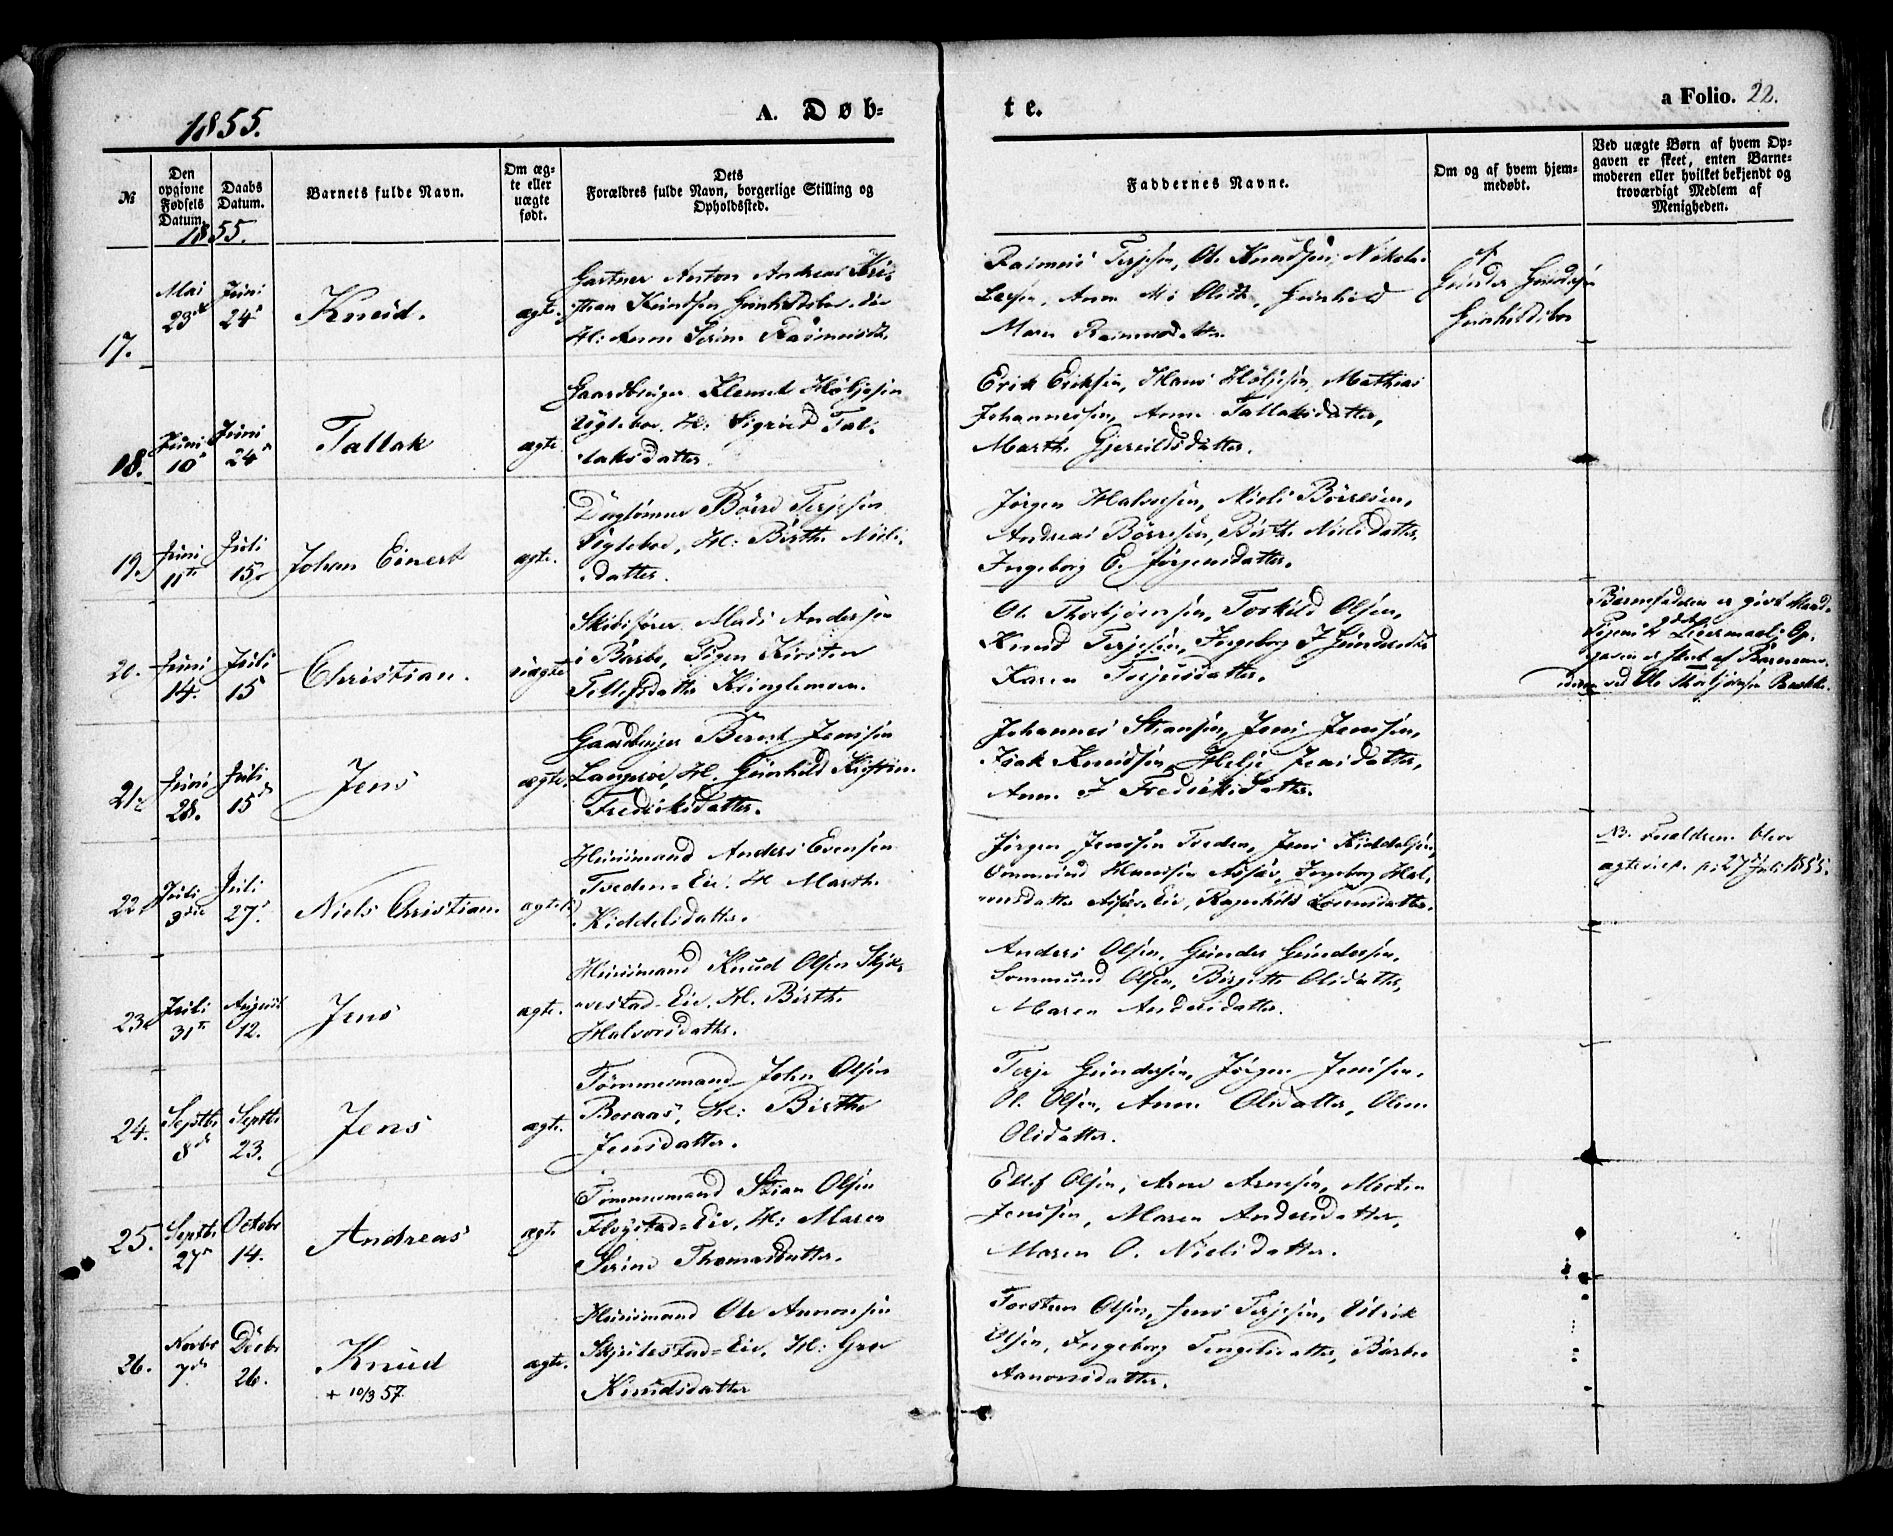 1855.
A. Døb-
te.
a Folio. 22.
№
Den
opgivne
Fødsels
Datum.
Daabs
Datum.
1855.
Barnets fulde Navn.
Om æg-
te eller
uægte
født.
Dets
Forældres fulde Navn, borgerlige Stilling og
Opholdssted.
Faddernes Navne.
Om og af hvem hjem-
medøbt.
Ved uægte Børn af hvem Op-
gaven er skeet, enten Barne-
moderen eller hvilket bekjendt og
troværdigt Medlem af
Menigheden.
17.
Mai
23de
Juni
24
Knud.
ægte.
Gartner Anton Andreas Kri-
sthan Knudsen
H: Anne Serine Rasmusdt.
Rasmus Terjesen, Ole Knudsen, Nikolai
Anne M: Olsdt., Gunhild
Maren Rasmusdatter
Gunder Gundersen
18.
Juni
10
Juni
24
Tallak
ægte
Gaardbruger Klemet Høljesen
Ugleboe, H: Sigrid Tal-
laksdatter.
Erik Eriksen, Hans Höljesen, Mathias
Johannessen, Anne Tallaksdatter,
Marthe Gjeruldsdatter.
19.
Juni
11te
Juli
15
Johan Einert
ægte.
Daglønner Börre Terjesen
Ugleboe, H: Birthe Niels-
datter.
Jørgen Halvorsen, Niels Börresen,
Andreas Börresen, Birthe Nielsdatter,
Ingeborg E. Jørgensdatter.
20.
Juni
14.
Juli
15
Christian.
uægte
Skibsfører Mads Andersen
i Barbo, Pigen Kirsten
Tellefsdatter Kringlemoen.
Ole Thorbjørnsen, Torkild Olsen,
Knud Terjesen, Ingeborg J Gundersdt
Karen Terjesdatter.
Barnefaderen er givt Mand.
Pigens 2det Leiermaal; Op-
gaven er skeet af Barnemo-
deren ved Ole Thorbjørnsen
21.
Juni
28.
Juli
15de
Jens
ægte.
Gaardbruger Berent Jenssen
Langsøe, H. Gunhild Kistine
Fredriksdatter.
Johannes Stiansen, Jens Jenssen,
Isak Knudsen, Helje Jensdatter,
Anne F Fredriksdatter.
22.
Juli
3die
Juli
27.
Niels Christian.
ægte
Huusmand Anders Evensen
Tveden-Eie. H Marthe
Kiddelsdatter.
Jörgen Jenssen Tveden, Jens Kiddelsen,
Ommund Hansen Assæv, Ingeborg Hal-
vorsdatter Eie, Ragnhild
NB. Forældrene bleve
ægteviede på 27 Juli 1855.
23.
Juli
31te
August
12.
Jens
ægte.
Huusmand Knud Olsen Skjul-
vestad-Eie. H. Birthe
Halvorsdatter.
Anders Olsen, Gunder Gundersen,
Sommund Olsen, Birgitte Olsdatter,
Maren Andersdatter.
24.
Septbr
8de
Septbr
23.
Jens
ægte.
Tömmermand John Olsen
Boraas, H: Birthe
Jensdatter.
Terje Gundersen, Jörgen Jenssen,
Ole Olsen, Anne Olsdatter, Oline
Olsdatter.
25.
Septbr
27
Octobr
14.
Andreas
ægte
Tömmermand Stian Olsen
Fløystad-Eie, H: Maren
Serine Thomasdatter.
Ellef Olsen, Arne Arnesen, Morten
Jenssen, Maren Andersdatter,
Maren O. Nielsdatter.
26.
Novbr
7de
Decbr
26.
Knud
+ 10/3 57.
ægte.
Huusmand Ole Aanonsen
Skjulestad-Eie, H: Gro
Knudsdatter
Torsten Olsen, Jens Terjesen, Ulrik
Olsen, Ingeborg Tengelsdatter, Barbro
Aanonsdatter.